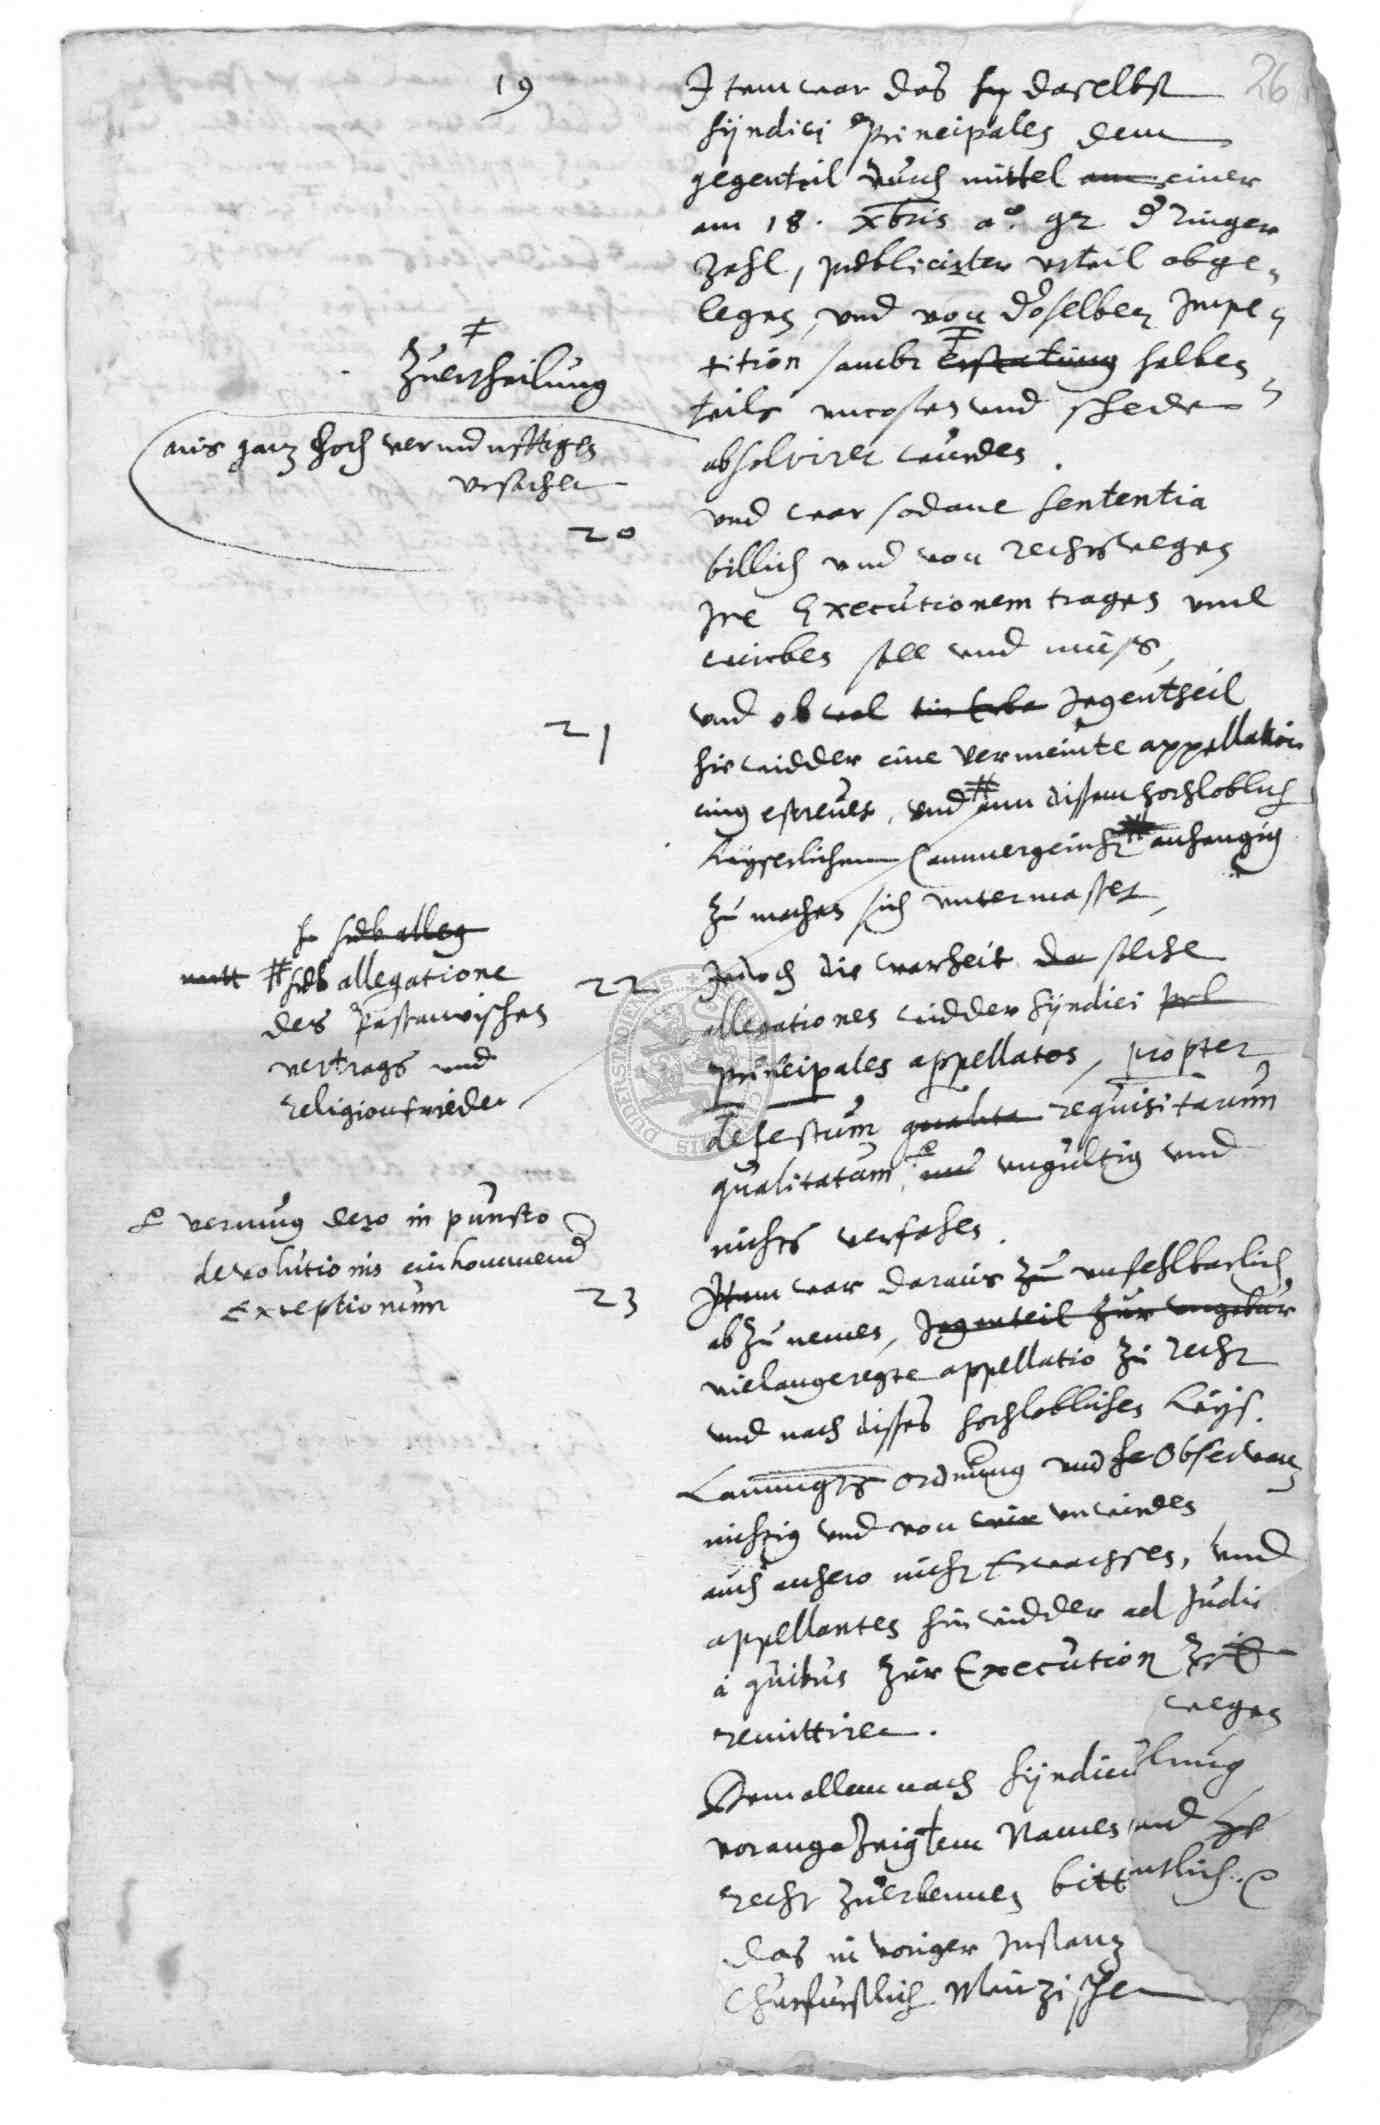 26
19
Item war das sy daselbst
Syndici Principales dem
gegenteil durch mittel einer
am 18. Xbris a° 92 d ringer
Zahl, publicirter urteil obge-
legen, und von derselben Impe-
tition sambt erstatung halben
≠
Zuertheilung
teils uncosten und scheden
absolviret wurden.
aus ganz hoch vernunfftigen
ursachen
20
und war sodane sententia
billich und von rechtswegen
Ire Executionem tragen und
wirken soll und muss,
21
und ob wol Jegentheil
hirwidder eine vermeinte appellation
eingestreuet, und ann dissem hochloblich
Keyserlichem Cammergericht anhengig
zu machen sich untermasset,
sub alleg
mitt # sub allegatione
des Passauwischen
vertrags und
religionfrieden
22
Jedoch die warheit da solche
allegationes widder Syndici prl
principales appellatos, propter
defectum qualita requisitarum
qualitatum, ungultig und
nichts verfahen.
vermug dero in puncto
devolutionis einkommend
Exceptionum
23
Item war daraus zu unfehlbarlich
abzunemen, Jegenteil zur ungebur
vielangeregte appellatio zu recht
und nach disses hochloblichen Keys.
Cammgrts ordnung und Observanz
nichtig und von unwirden
auch anhero nicht Erwachsen, und
appellantes hinwidder ad Judic
a quibus zur Execution
remittiren.
wegen
Dem allem nach Syndicus
vorangezeigtem Namen und
recht zuerkennen bittentlich
das in voriger Instanz
Churfurstlich Mainzischen